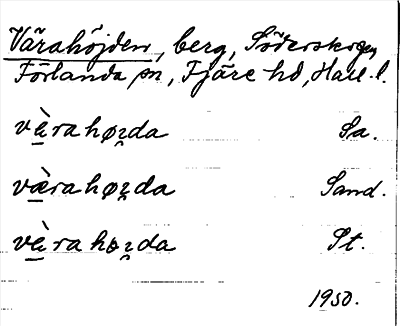 Värahöjden, berg, Söderskogen,
Förlanda sn, Fjäre hd, Hall. l.
væ̀rahøʒda Sa.
væ̀rahøʒda Sand.
væ̀rahøʒda St.
1950.